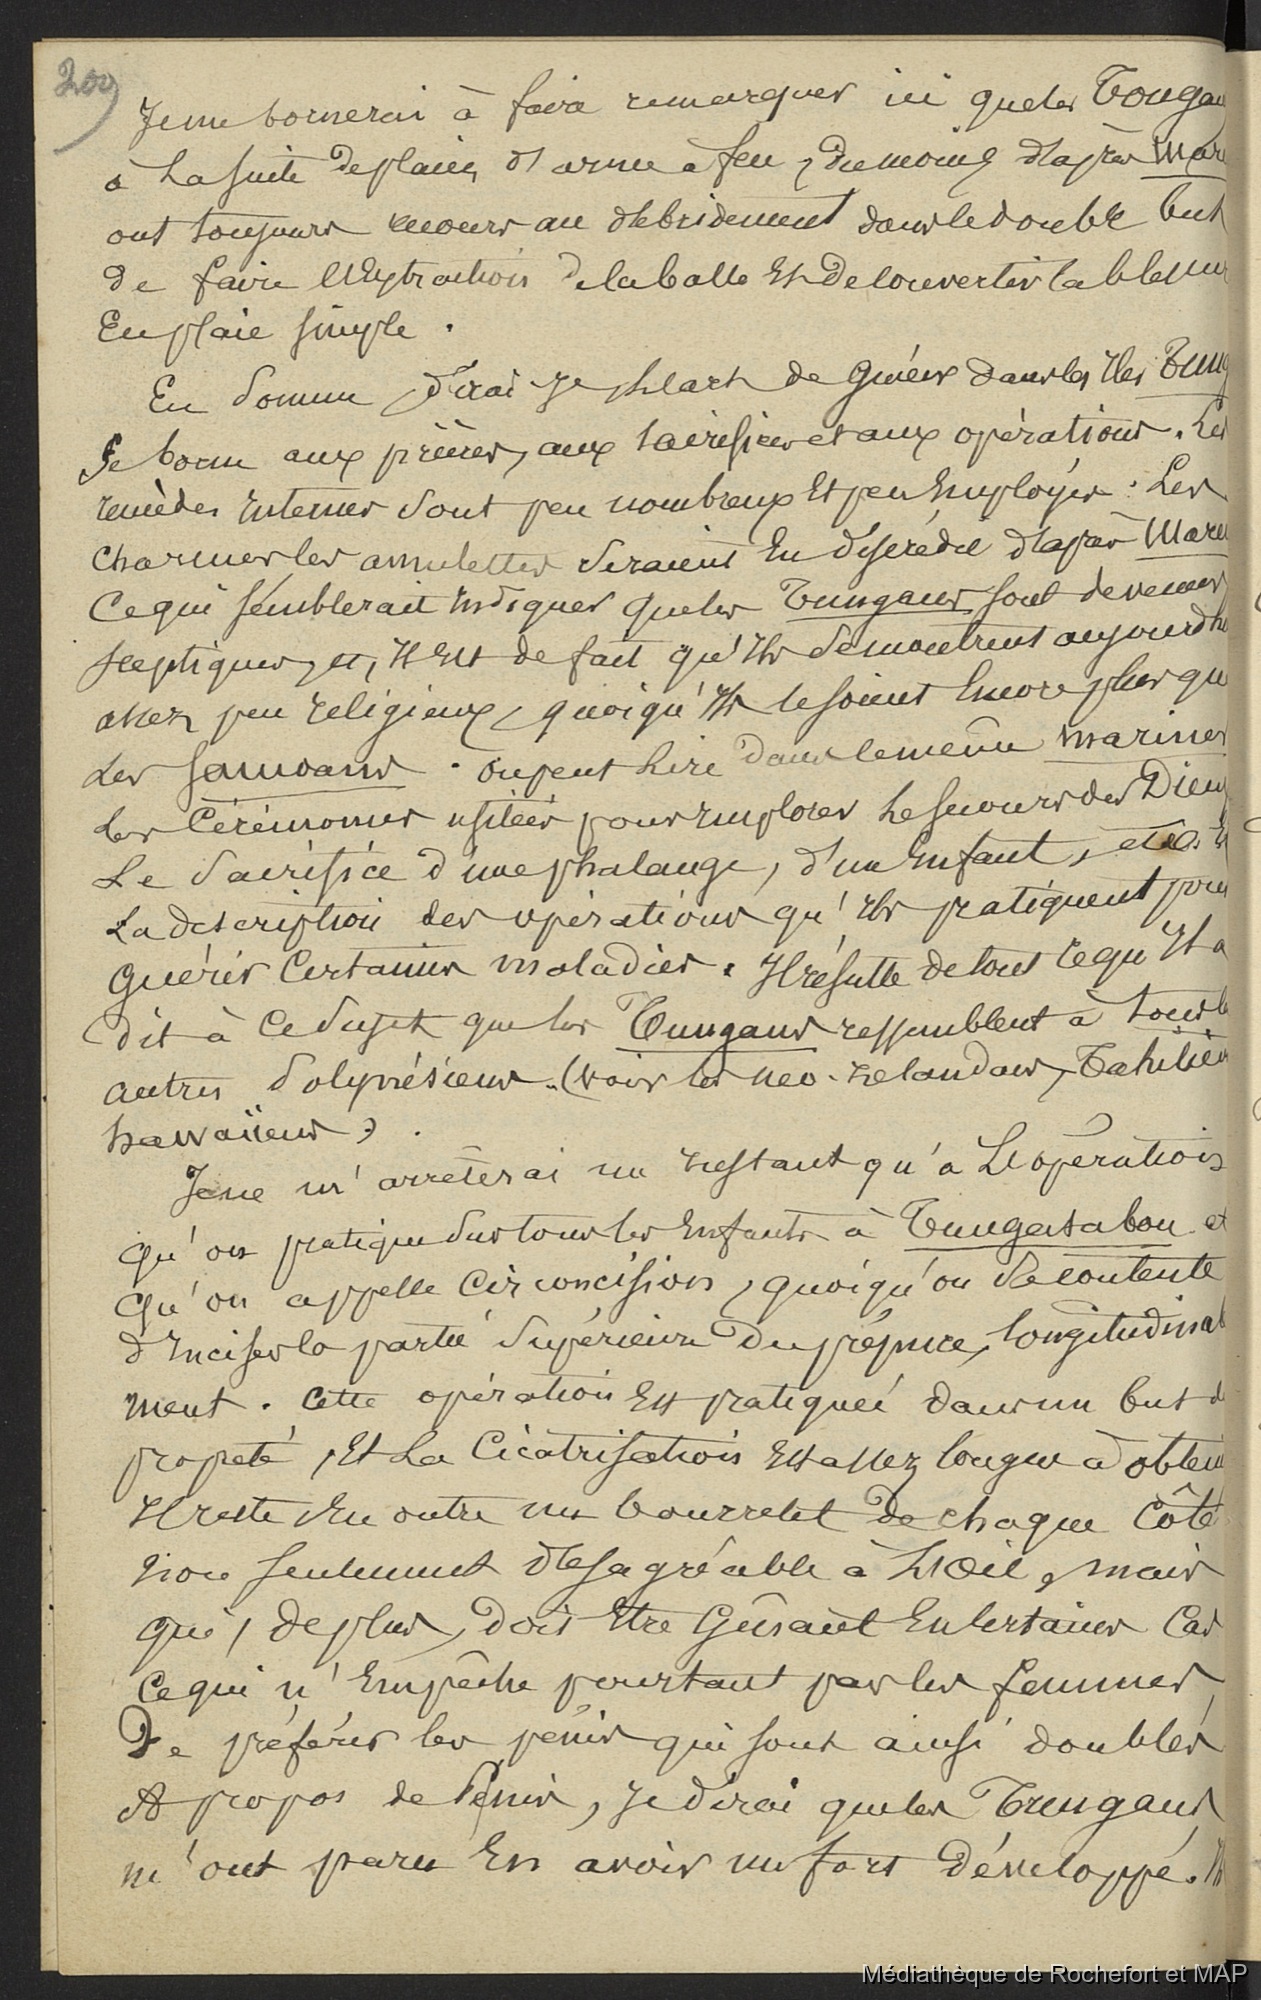 209
Je me bornerai à faire remarquer ici que les Tongans
à la suite de plaies d'arme à feu, du moins d'après Mari
ont toujours recours au débridement dans le double but
de faire l'extraction de la balle et de convertir la blessure
en plaie simple.
En somme, dirai-je, l'art de guérir dans les îles Tung
se borne aux prières, aux sacrifices et aux opérations. Les
remèdes internes sont peu nombreux et peu employés. Les
charmes les amulettes seraient en discrédit d'après Mari
Ce qui semblerait indiquer que les Tungans sont devenus
sceptiques, et, il est de fait qu'ils se montrent aujourd'hu
assez peu religieux, quoiqu'ils le soient encore plus que
les Samoans. On peut lire dans le même Mariner
les cérémonies usitées pour implorer le secours des Dieux
Le sacrifice d'une phalange, d'un enfant, etc. et
La description des opérations qu'ils pratiquent pour
guérir certaines maladies. Il résulte de tout ce qu'il a
dit à ce sujet que les Tungans ressemblent à tous les
autres Polynésiens. (voir les neo-zelandais, Tahitiens
hawaïiens).
Je ne m'arrêterai un instant qu'à l'opération
qu'on pratique sur tous les enfants à Tungatabou et
qu'on appelle circoncision, quoiqu'on se contente
d'inciser la partie supérieure du prépuce, longitudinal
ment. Cette opération est pratiquée dans un but de
propreté, et la cicatrisation est assez longue à obtenir
Il reste en outre un bourrelet de chaque côté
non seulement désagréable à l'œil, mais
qui, de plus, doit être gênant en certains cas
ce qui n'empêche pourtant pas les femmes
De préférer les pénis qui sont ainsi doublés
A propos de Pénis, je dirai que les Tungans
m'ont paru en avoir un fort développé. Ils
Médiathèque de Rochefort et MAP